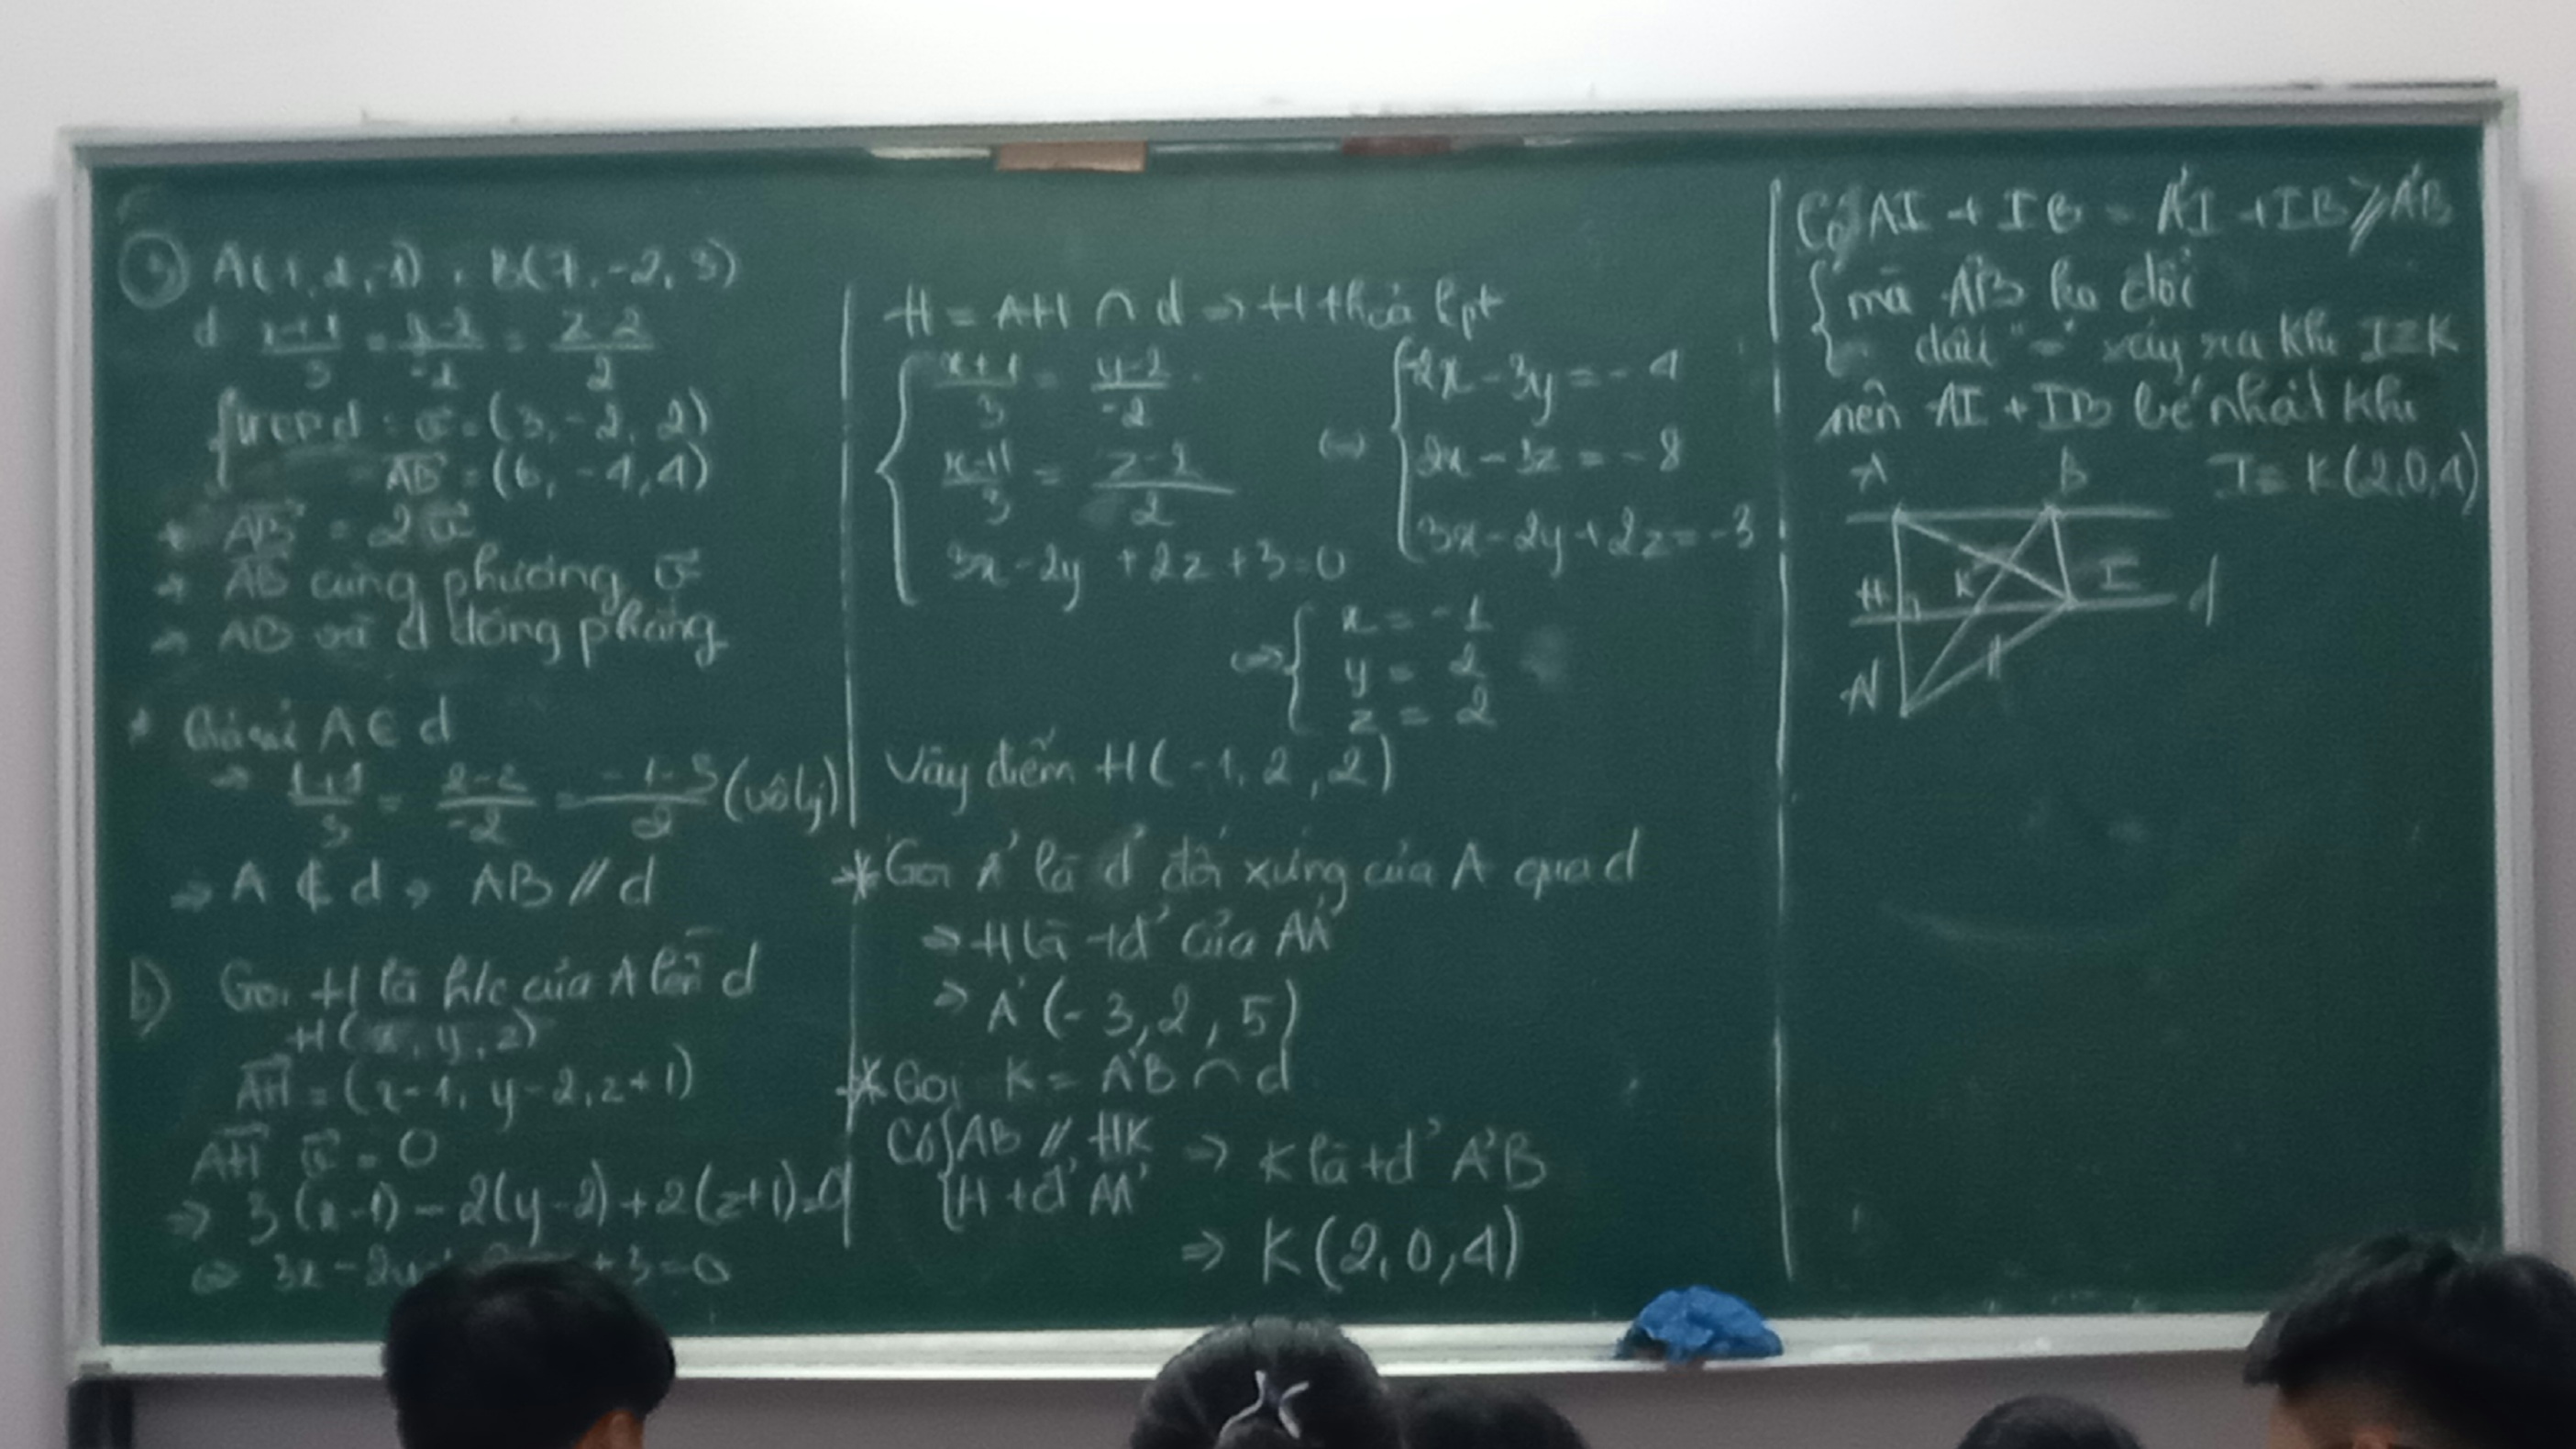 ③ A(1,2,-1), B(7,-2,3)
d x+1/3 = y-2/-2 = z-2/2
{ vtcp d: v⃗ = (3,-2,2)
AB⃗ = (6,-4,4)
→ AB⃗ = 2v⃗
→ AB⃗ cùng phương v⃗
→ AB và d đồng phẳng
* Giả sử A ∈ d
⇒ 1+1/3 = 2-2/-2 = -1-2/2 (vô lý)
⇒ A ∉ d ⇒ AB // d
b) Gọi H là h/c của A lên d
H(x,y,z)
AH⃗ = (x-1, y-2, z+1)
AH⃗ v⃗ = 0
⇒ 3(x-1) - 2(y-2) + 2(z+1)=0
⇔ 3x-2y +3=0
H = AH ∩ d ⇒ H thỏa hpt
{ x+1/3 = y-2/-2
x+1/3 = z-2/2
3x-2y+2z+3=0
⇔ { -2x-3y=-4
2x-3z=-8
3x-2y+2z=-3
⇔ { x = -1
y = 2
z = 2
Vậy điểm H(-1,2,2)
* Gọi A' là đ' đối xứng của A qua d
⇒ H là tđ' của AA'
⇒ A'(-3,2,5)
* Gọi K = A'B ∩ d
Có { AB // HK
H tđ' AA'
⇒ K là tđ' A'B
⇒ K(2,0,4)
Có AI + IB = A'I + IB ≥ A'B
{ mà A'B ko đổi
dấu "=" xảy ra khi I≡K
nên AI + IB bé nhất khi
I≡K(2,0,4)
A B
H K I d
A'